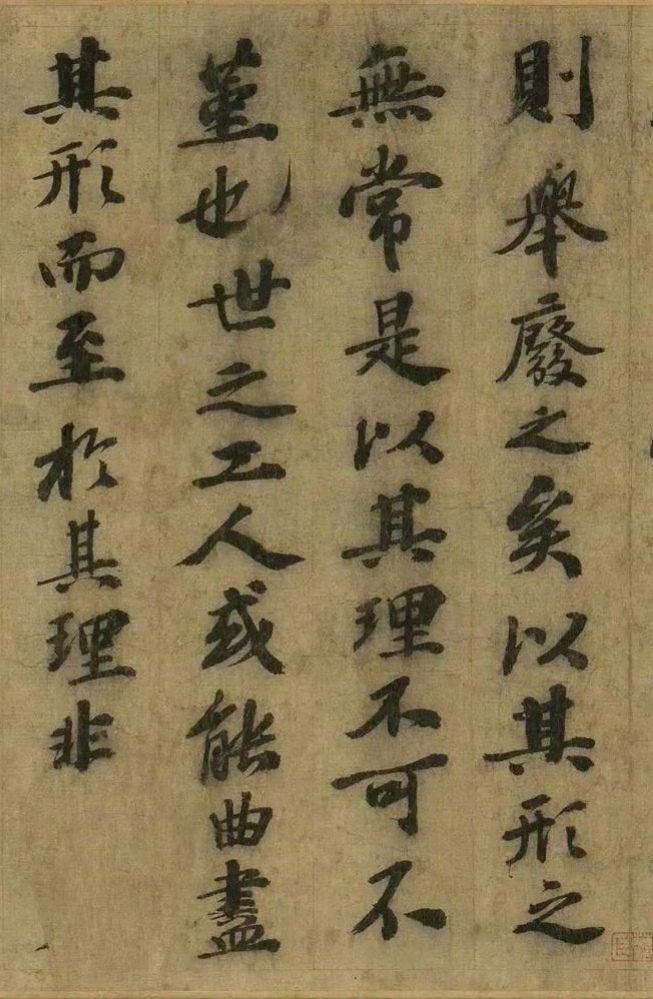 則舉廢之矣以其形之
無常是以其理不可不
堇也世之工人或能曲盡
其形而至於其理非